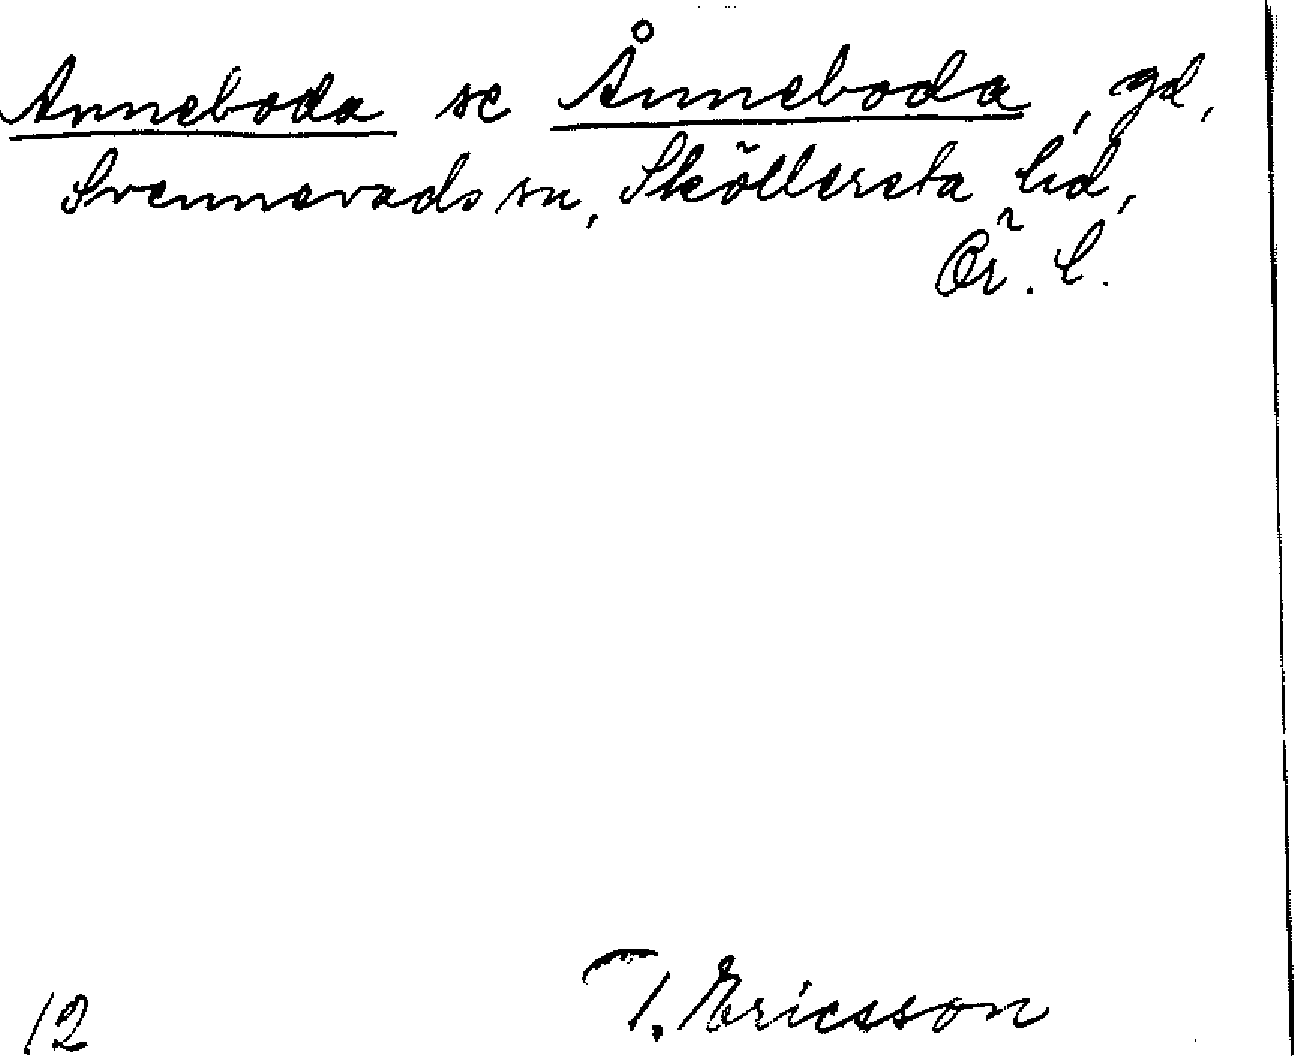 Anneboda se Ånneboda, gd,
Svennevads sn, Sköllersta hd,
Ör. l.
12 T. Ericsson